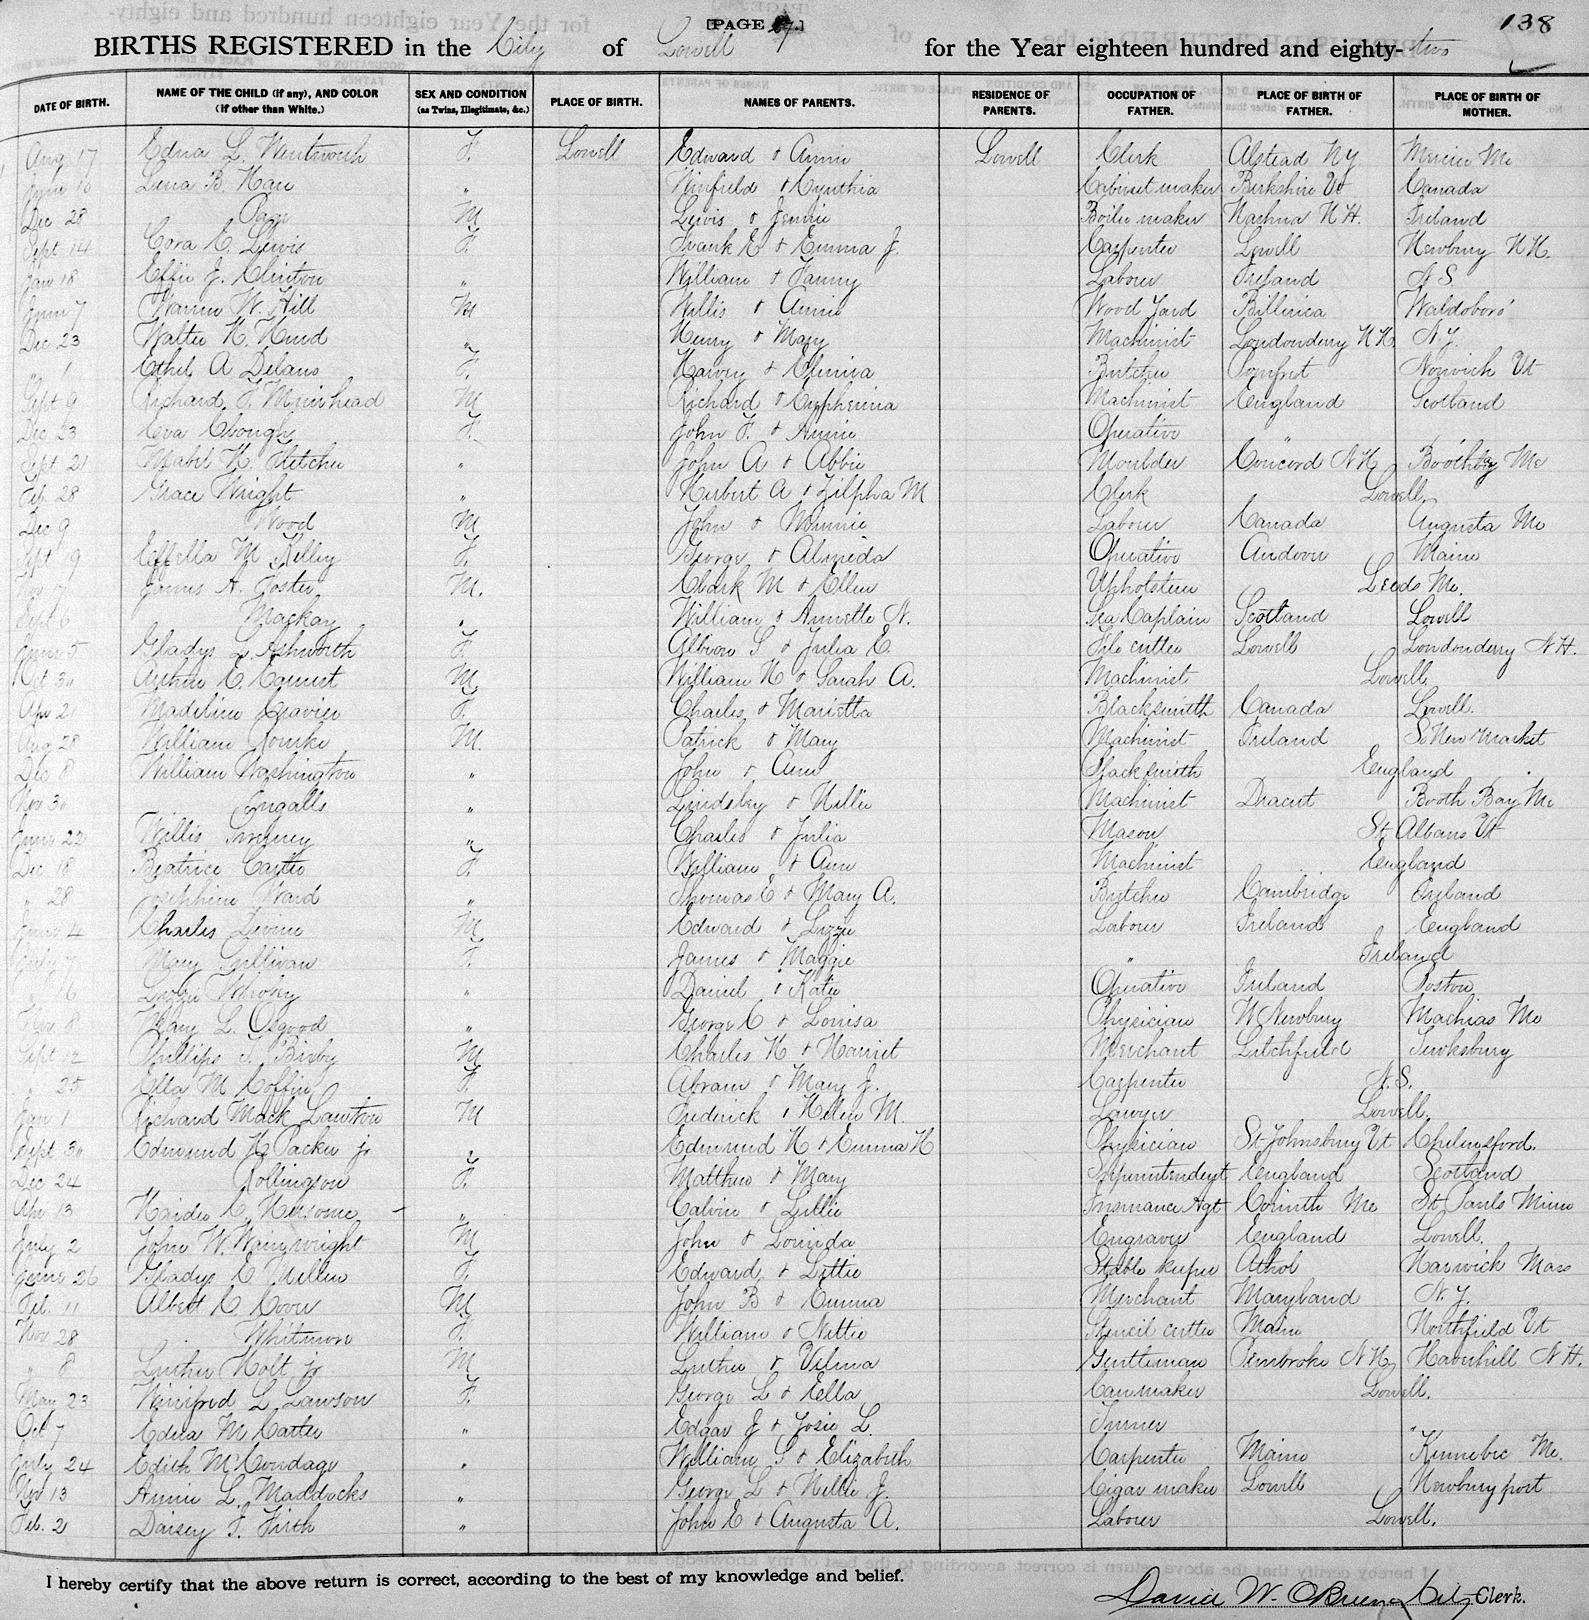 [PAGE 138
BIRTHS REGISTERED in the City of Lowell for the Year eighteen hundred and eighty-two
DATE OF BIRTH. NAME OF THE CHILD (if any), AND COLOR (if other than White.) SEX AND CONDITION (as Twins, Illegitimate, &c.) PLACE OF BIRTH. NAMES OF PARENTS. RESIDENCE OF PARENTS. OCCUPATION OF FATHER. PLACE OF BIRTH OF FATHER. PLACE OF BIRTH OF MOTHER.
Aug 17 Edna L. Wentworth F. Lowell Edward & Annie Lowell Clerk Alstead NY Me
June 10 Lena B. " Winfield & Cynthia Cabinet maker Berkshire Vt Canada
Dec 28 Page M Lewis & Jennie Boiler maker Nashua N.H. Ireland
Sept 14 Cora E. Lewis F. Frank E & Emma J. Carpenter Lowell Newbury N.H.
Jan 18 Effie J. Clinton " William & Fanny Laborer Ireland N.S.
June 7 Warren W. Hill M Willis & Annie Wood Yard Billerica Waldoboro
Dec 23 Walter H. " Henry & Mary Machinist Londonderry N.H. N.Y.
" 1 Ethel A Delano F. Harvey & Elmira Butcher Pomfret Norwich Vt
Sept 9 Richard F. Muirhead M Richard & Euphemia Machinist England Scotland
Dec 23 Eva Clough F. John F. & Annie Operative "
Sept 21 Mabel H. Fletcher " John A & Abbie Moulder Concord N.H. Boothbay Me
Feb. 28 Grace Wright " Herbert A & Zilpha M Clerk Lowell.
Dec 9 Wood M John & Minnie Laborer Canada Augusta Me
Sept 19 Effella M Kelley F. George & Almeda Operative Andover Maine
James A. Foster M. Clark M & Ellen Upholsterer Leeds Me.
Sept 6 Mackay " William & Annette N. Sea Captain Scotland Lowell
June 5 Gladys L. Ashworth F. Albion S & Julia E. File cutter Lowell Londonderry N.H.
Oct 30 Arthur E. M. William H & Sarah A. Machinist Lowell.
Apr 21 Madeline Gravier F. Charles & Marietta Blacksmith Canada Lowell.
Aug 28 William Rourke M. Patrick & Mary Machinist Ireland So New Market
Dec 8 William Washington " John & Ann Blacksmith England
Nov 30 Ingalls " Lindsley & Nellie Machinist Dracut Booth Bay Me
June 22 Willis " Charles & Julia Mason St. Albans Vt
Dec 18 Beatrice Carter F. William & Ann Machinist England
" 28 Josephine Ward " Thomas E & Mary A. Butcher Cambridge Ireland
June 4 Charles Devine M Edward & Lizzie Laborer Ireland England
July 7 Mary Sullivan F. James & Maggie " Ireland
" 16 Lizzie " Daniel & Katie Operative Ireland Boston
Nov 8 Mary L. Osgood " George C & Louisa Physician W Newbury Machias Me
Sept 12 Phillips F. Bixby M Charles H & Harriet Merchant Litchfield Tewksbury
" 25 Ella M Coffin F. Abram & Mary J. Carpenter N.S.
Jan 1 Richard Mack Lawton M Frederick & Helen M. Lawyer Lowell.
Sept 30 Edmund H Packer jr " Edmund H & Emma H Physician St Johnsbury Vt Chelmsford.
Dec 24 Rollingson F. Matthew & Mary Superintendent England Scotland
Apr 13 Haidee C. Hersome " Calvin & Lillie Insurance Agt Corinth Me St Pauls Minn
July 2 John W. Wainwright M John & Lorinda Engraver England Lowell.
June 26 Gladys E Miller F. Edward & Lottie Stable keeper Athol Harwich Mass
Feb. 11 Albert C. Cover M John B & Emma Merchant Maryland N.Y.
Nov 28 Whitmore F. William & Nettie Stencil cutter Maine Northfield Vt
" 8 Luther Holt jr M Luther & Velma Gentleman Pembroke N.H. Haverhill N.H.
May 23 Winifred L Lawson F. George L & Ella Can maker Lowell.
Oct 7 Edna M Carter " Edgar J & Josie L. "
July 24 Edith M Cundage " William S & Elizabeth Carpenter Maine Kennebec Me.
Nov 13 Annie L. Maddocks " George L & Nellie J. Cigar maker Lowell Newburyport
Feb. 2 Daisey F. Firth " John E & Augusta A. Laborer Lowell.
I hereby certify that the above return is correct, according to the best of my knowledge and belief.
David W. O'Brien City Clerk.